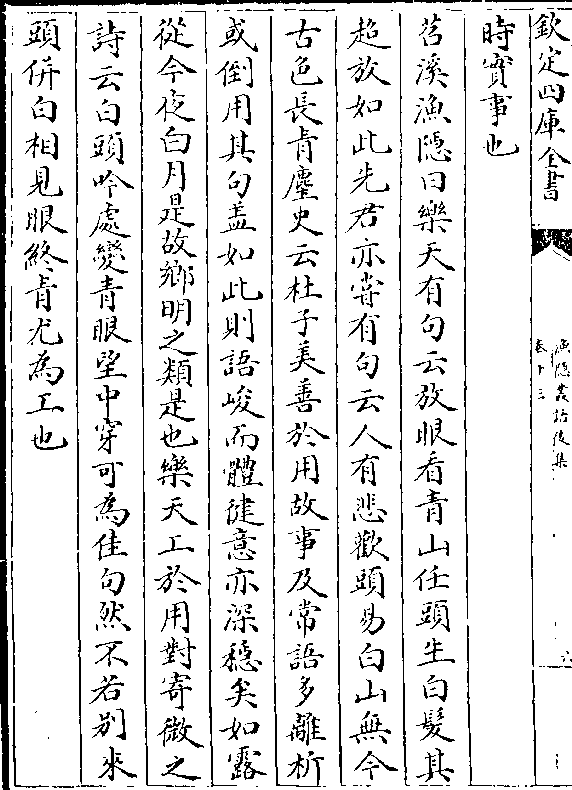 欽定四庫全書
漁隱叢話後集
卷十三
六
時實事也
苕溪漁隱曰樂天有句云放眼看青山任頭生白髮其
超放如此先君亦嘗有句云人有悲歡頭易白山無今
古色長青麈史云杜子美善於用故事及常語多離析
或倒用其句盖如此則語峻而體健意亦深穩矣如露
從今夜白月是故鄉明之類是也樂天工於用對寄微之
詩云白頭吟處變青眼望中穿可為佳句然不若别來
頭併白相見眼終青尤為工也